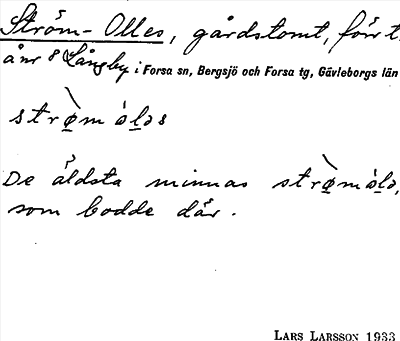 Ström-Olles, gårdstomt, förr t.
å nr 8 Långby i Forsa sn, Bergsjö och Forsa tg, Gävleborgs län
De äldsta minnas
som bodde där.
LARS LARSSON 1933